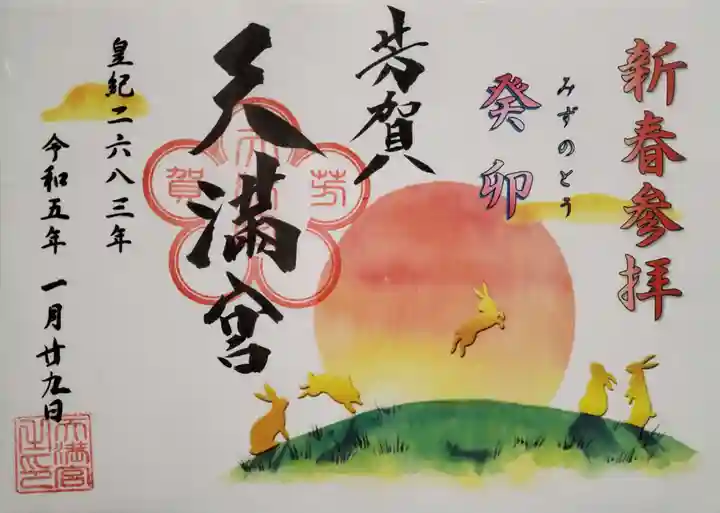 新春参拝
みずのとう
癸卯
芳賀
天満宮
芳賀
皇紀二六八三年
令和五年 一月廿九日
天満宮
之印